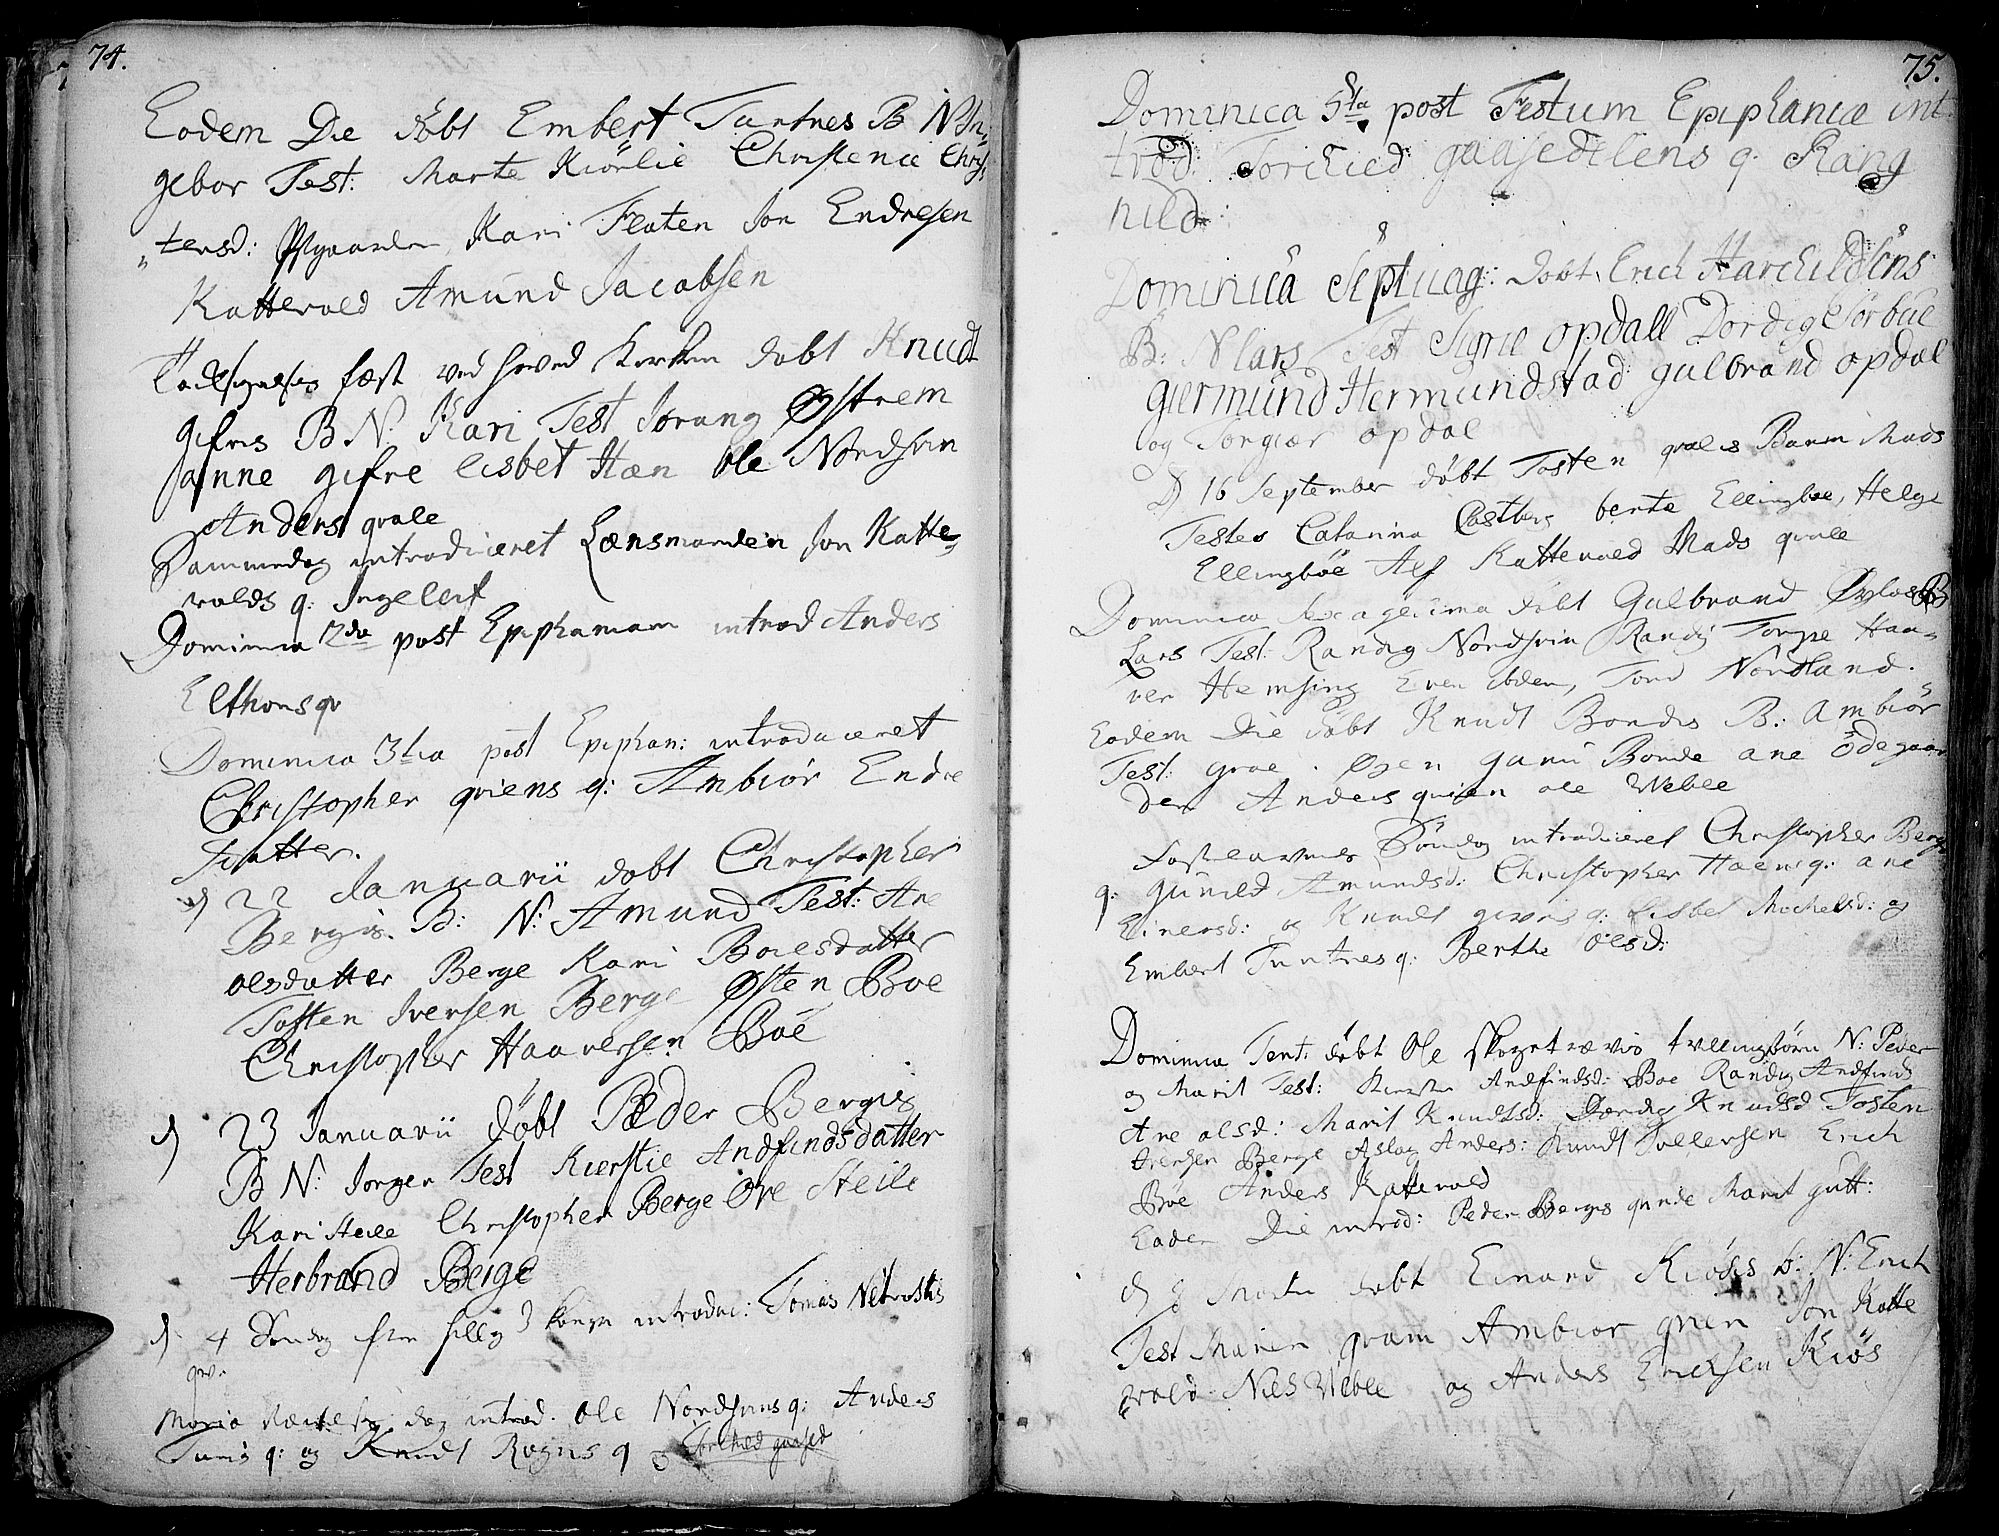 74.
Eodem Die döbt Embert Tuntnes B N In,
gebor Test: Marte Kiörlie Christence Chris,
"tensd: Kari Flaten Jon Endresen
Kattevold Amund Jacobsen
fæst ved hoved Kirken döbt Knudt
gifres B N. Kari Test Jorang Østrem
Anne gifre lisbet Hæn Ole Nordsvin
Anders qvale
Sammedag introduceret Lænsmanden Jon Katte,
volds q: Ingeleif
Dominica 2da post Epiphaniam introd Anders
Elthons qv
Dominica 3tia post Epiphan: introduceret
Christopher qviens q: Ambiör Endre
Datter.
D 22 Januarii döbt Christopher
Bergis B: N: Amund Test: Ane
olesdatter Berge Kari Boiesdatter
Tosten Iversen Berge Østen Böe
Christopher Haaversen Böe
D 23 Januarii döbt Peder Bergis
B N: Jörgen Test Kierstie Andfindsdatter
Kari Steile Christopher Berge Ore Steile
Herbrand Berge
D. 4 Söndag efter hellig 3 konger introduc: Tomas
qv.
Maria dag introd. Ole Nordsvins q: Anders
Turis q: og Knudt Rogns q og Torchild gaased
75.
Dominica 5ta post Festum Epiphaniæ int
trod: Torchied gaasedelens q. Rang
nild:
Dominica Septuag: döbt Erich Harchildsens
B: N lars Test Sigrie opdall Dordig
giermund Hermundstad gulbrand opdal
og Torgier opdal
D 16 September döbt Tosten qvales Barn Mads
Testes Catarina berte Ellingböe, Helge
Ellingböe Alf Kattevold Mads qvale
Dominica Sexagesima döbt Gulbrand B
Lars Test: Randig Nordsvin Randi Torpe Haa,
ver Hemsing Even ibdem, Tord Nordland.
Eodem Die döbt Knudt Bondes B: Ambiör
Test: groe. Øxen Guru Bonde ane ödegaar
den Anders qvien ole Weble
Fastelavens Söndag introduceret Christopher Bergs
q: Gunild Amundsd: Christopher Haens q: ane
Einersd: og Knudt q: Lisbet Michelsd: og
Embert Tuntnes q: Berthe olesd:
Dominica Tent: döbt Ole tvillingbörn N: Peder
og Marit Test: Kierstie Andfindsd: Boe Randig Andfinds
Ane olsd: Marit Knudtsd: Dordig Knudsd Tosten
Iversen Berge Aslag Anders: Knudt Erich
Böe Anders Kattevold
Eodem Die introd: Peder Berges qvinde Marit gutt:
D 8 Martii döbt Einard Kiöses b: N: Erich
Test Maren qvam Ambiör qvien Jon Katte
vold Niels Weble og Anders Erichsen Kiös